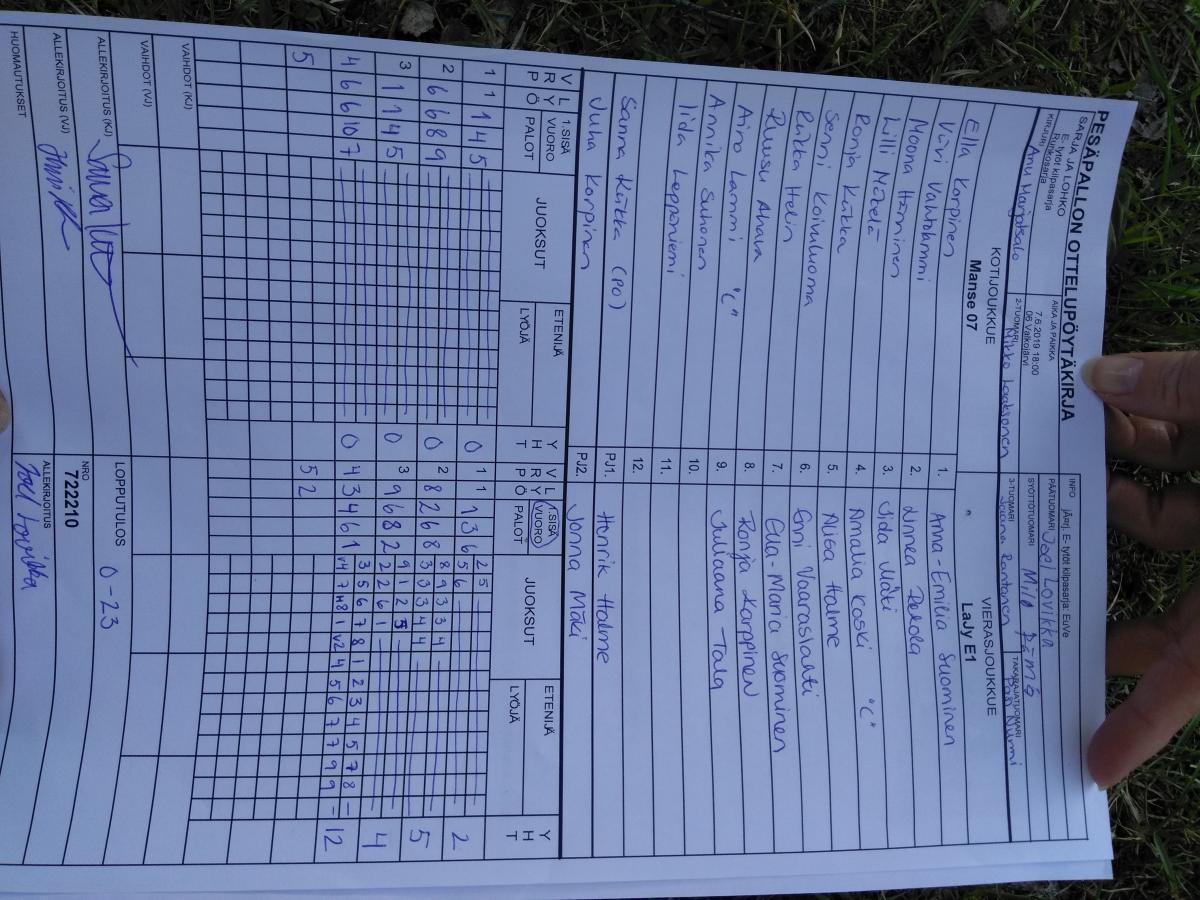 PESÄPALLON OTTELUPÖYTÄKIRJA
SARJA JA LOHKO
E- tytöt kilpasarja
Runkosarja
AIKA JA PAIKKA
7.6.2019 18:00
06 Valkojärvi
INFO järj. E- tytöt kilpasarja: EuVe
PÄÄTUOMARI Joel Lovikka
SYÖTTÖTUOMARI
KIRJURI Anu Marjatsalo
2-TUOMARI Mikko Laaksonen
3-TUOMARI Saana Rantanen
TAKARAJATUOMARI Pasi Nurmi
KOTIJOUKKUE
Manse 07
VIERASJOUKKUE
LaJy E1
Ella Korpinen 1. Anna-Emilia Suominen
2. Linnea Pekola
Moona Honninen 3. Iida Mäki
4. Amalia Koski "C"
Ronja Kukka 5. Aliisa Halme
Senni Koivuluoma 6. Enni Vaaraslahti
Pinkka Helin 7. Ella-Maria Suominen
Ruusu Ahava 8. Ronja Karppinen
Aino Lammi "C" 9. Juliaana Tala
Annika Suhonen 10.
Iida Leppäniemi 11.
12.
Sanna Kukka (PO) PJ1. Henrik Halme
Juha Korpinen PJ2. Jonna Mäki
V R L Y Ö 1.SISÄ VUORO P PALOT JUOKSUT ETENIJÄ LYÖJÄ Y H T
V R L Y Ö 1.SISÄ VUORO P PALOT JUOKSUT ETENIJÄ LYÖJÄ Y H T
1 1 1 4 5 0 1 1 1 3 6 2 5 2
5 6
2 6 6 8 9 0 2 8 2 6 8 8 9 3 3 4 5
3 3 3 4 4
3 1 1 4 5 0 3 9 6 8 2 9 1 2 5 4
2 2 6 1
4 6 6 10 7 0 4 3 4 6 1 3 5 6 7 8 1 2 3 4 5 7 8 12
V4 7 H8 1 V2 4 5 6 7 7 9 9
5 5 2
VAIHDOT (KJ)
VAIHDOT (VJ)
ALLEKIRJOITUS (KJ)
ALLEKIRJOITUS (VJ)
HUOMAUTUKSET
LOPPUTULOS 0-23
NRO
722210
ALLEKIRJOITUS
Joel Lovikka